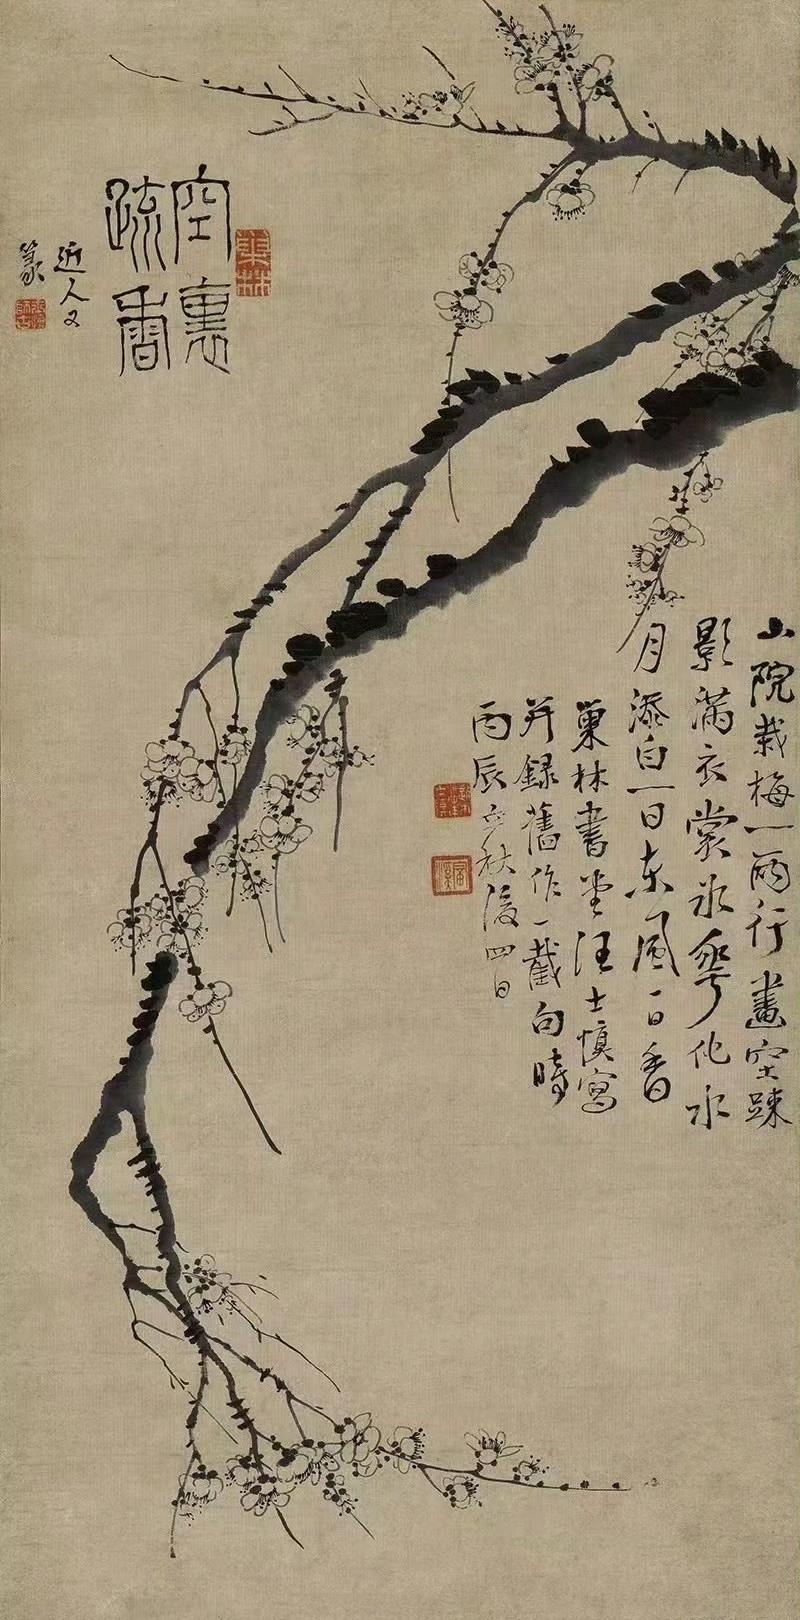 空裏
疏香
近人又
篆
山院栽梅一兩行畫空踈
影滿衣裳冰華化水
月添白一日東風一日香
巢林書堂汪士慎寫
并錄舊作一截句時
丙辰立秋後四日
巢林